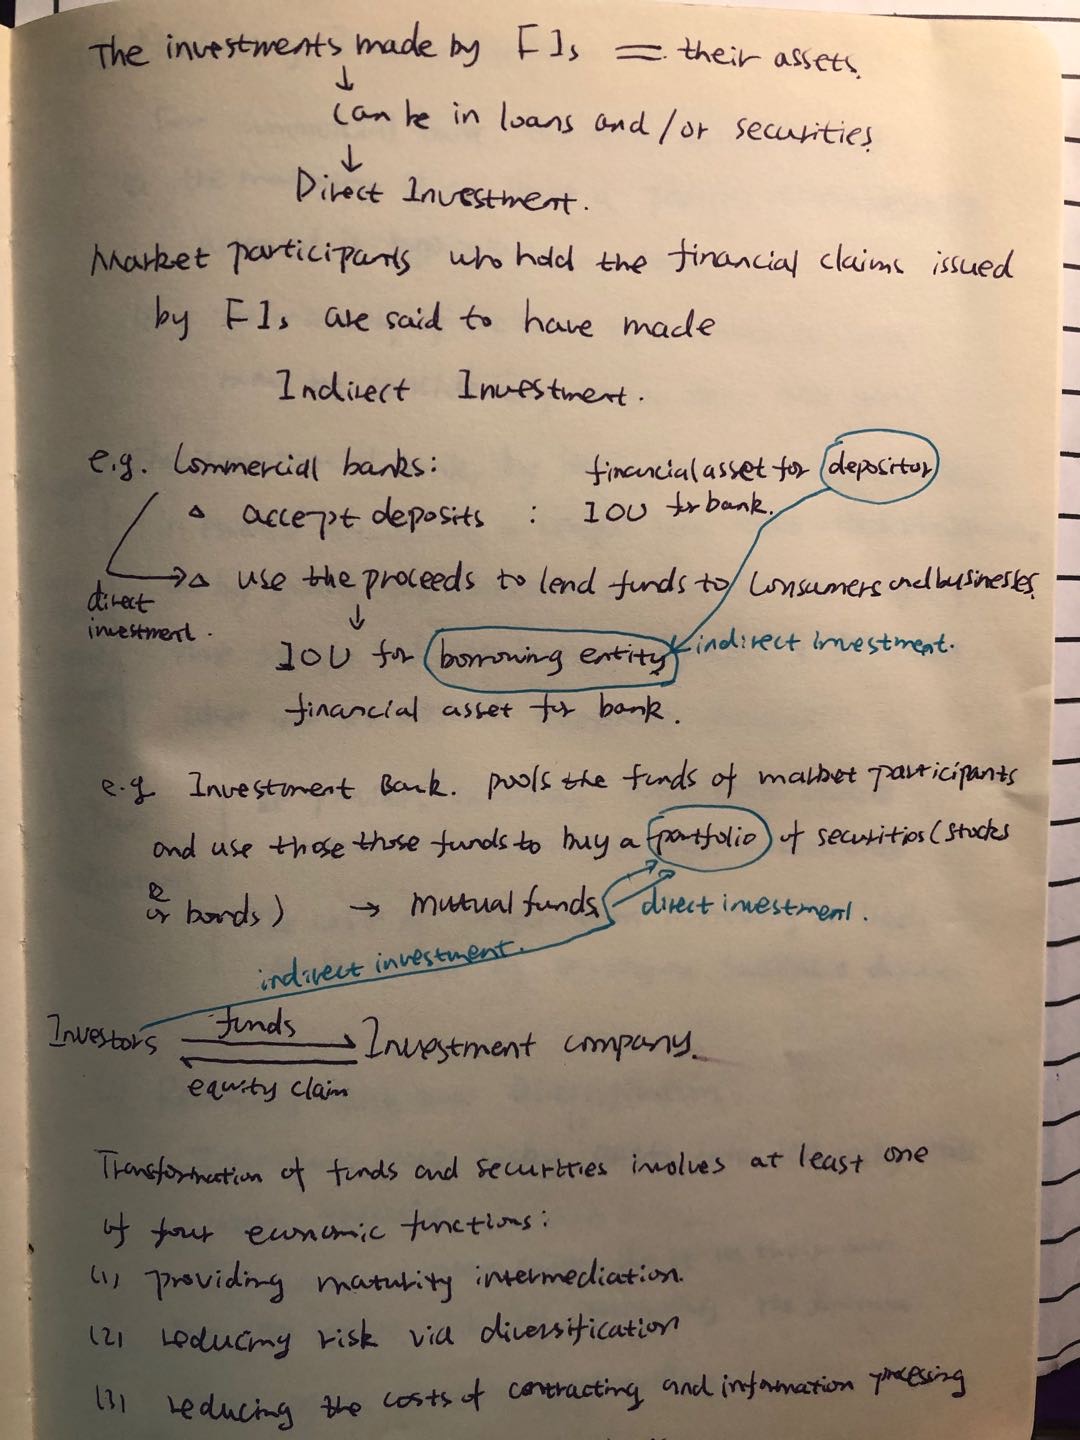 The investments made by FIs = their assets.
↓
can be in loans and/or securities.
↓
Direct Investment.
Market participants who hold the financial claims issued
by FIs are said to have made
Indirect Investment.
e.g. Commercial banks: financial asset for depositor
△ accept deposits : IOU for bank.
→△ use the proceeds to lend funds to consumers and businesses.
direct
investment.
↓
IOU for borrowing entity indirect investment.
financial asset for bank.
e.g. Investment Bank. pools the funds of market participants
and use those those funds to buy a portfolio of securities (stocks
& or bonds) → mutual funds direct investment.
indirect investment.
Investors funds → Investment company.
← equity claim
Transformation of funds and securities involves at least one
of four economic functions:
(1) providing maturity intermediation.
(2) reducing risk via diversification
(3) reducing the costs of contracting and information processing